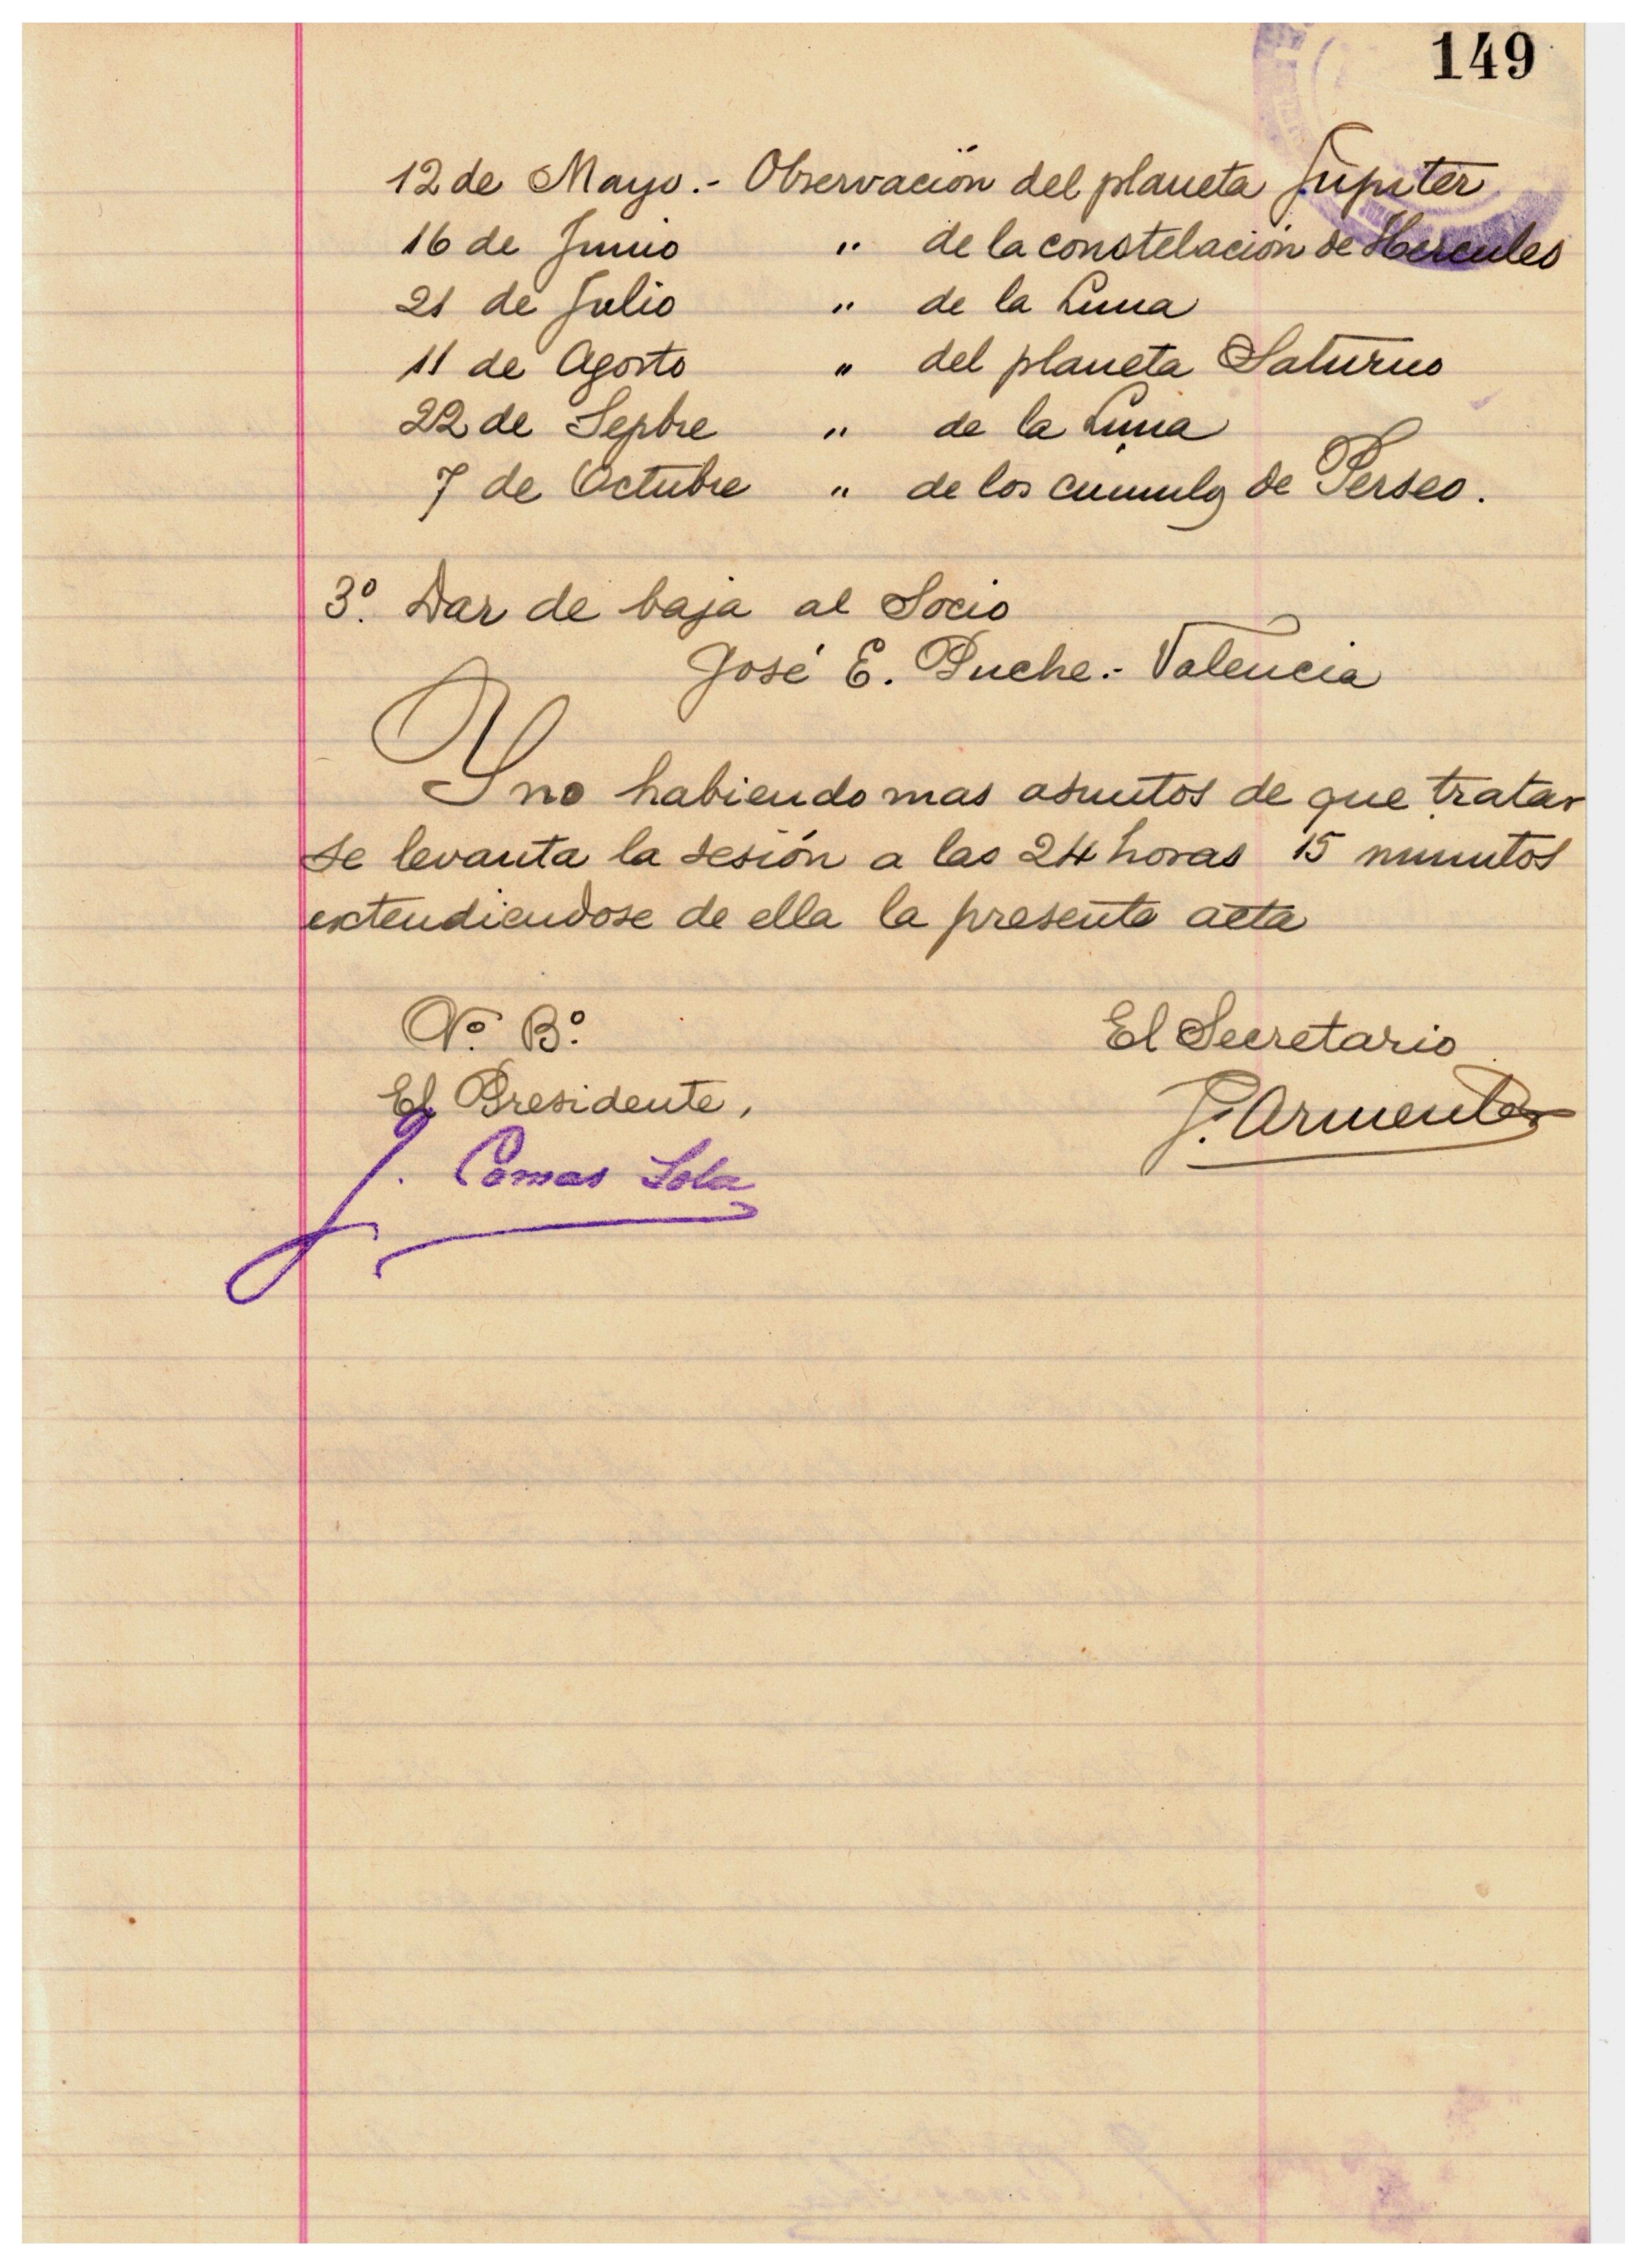 149
12 de Mayo.- Observación del planeta Júpiter
16 de Junio " de la constelación de Hercules
21 de Julio " de la Luna
11 de Agosto " del planeta Saturno
22 de Sepbre " de la Luna
7 de Octubre " de los cúmulos de Perseo.
3º. Dar de baja al Socio
José E. Puche.- Valencia
Y no habiendo mas asuntos de que tratar
se levanta la sesión a las 24 horas 15 minutos
extendiendose de ella la presente acta
Vº. Bº.
El Secretario
El Presidente,
F. Armenter
J. Comas Solà